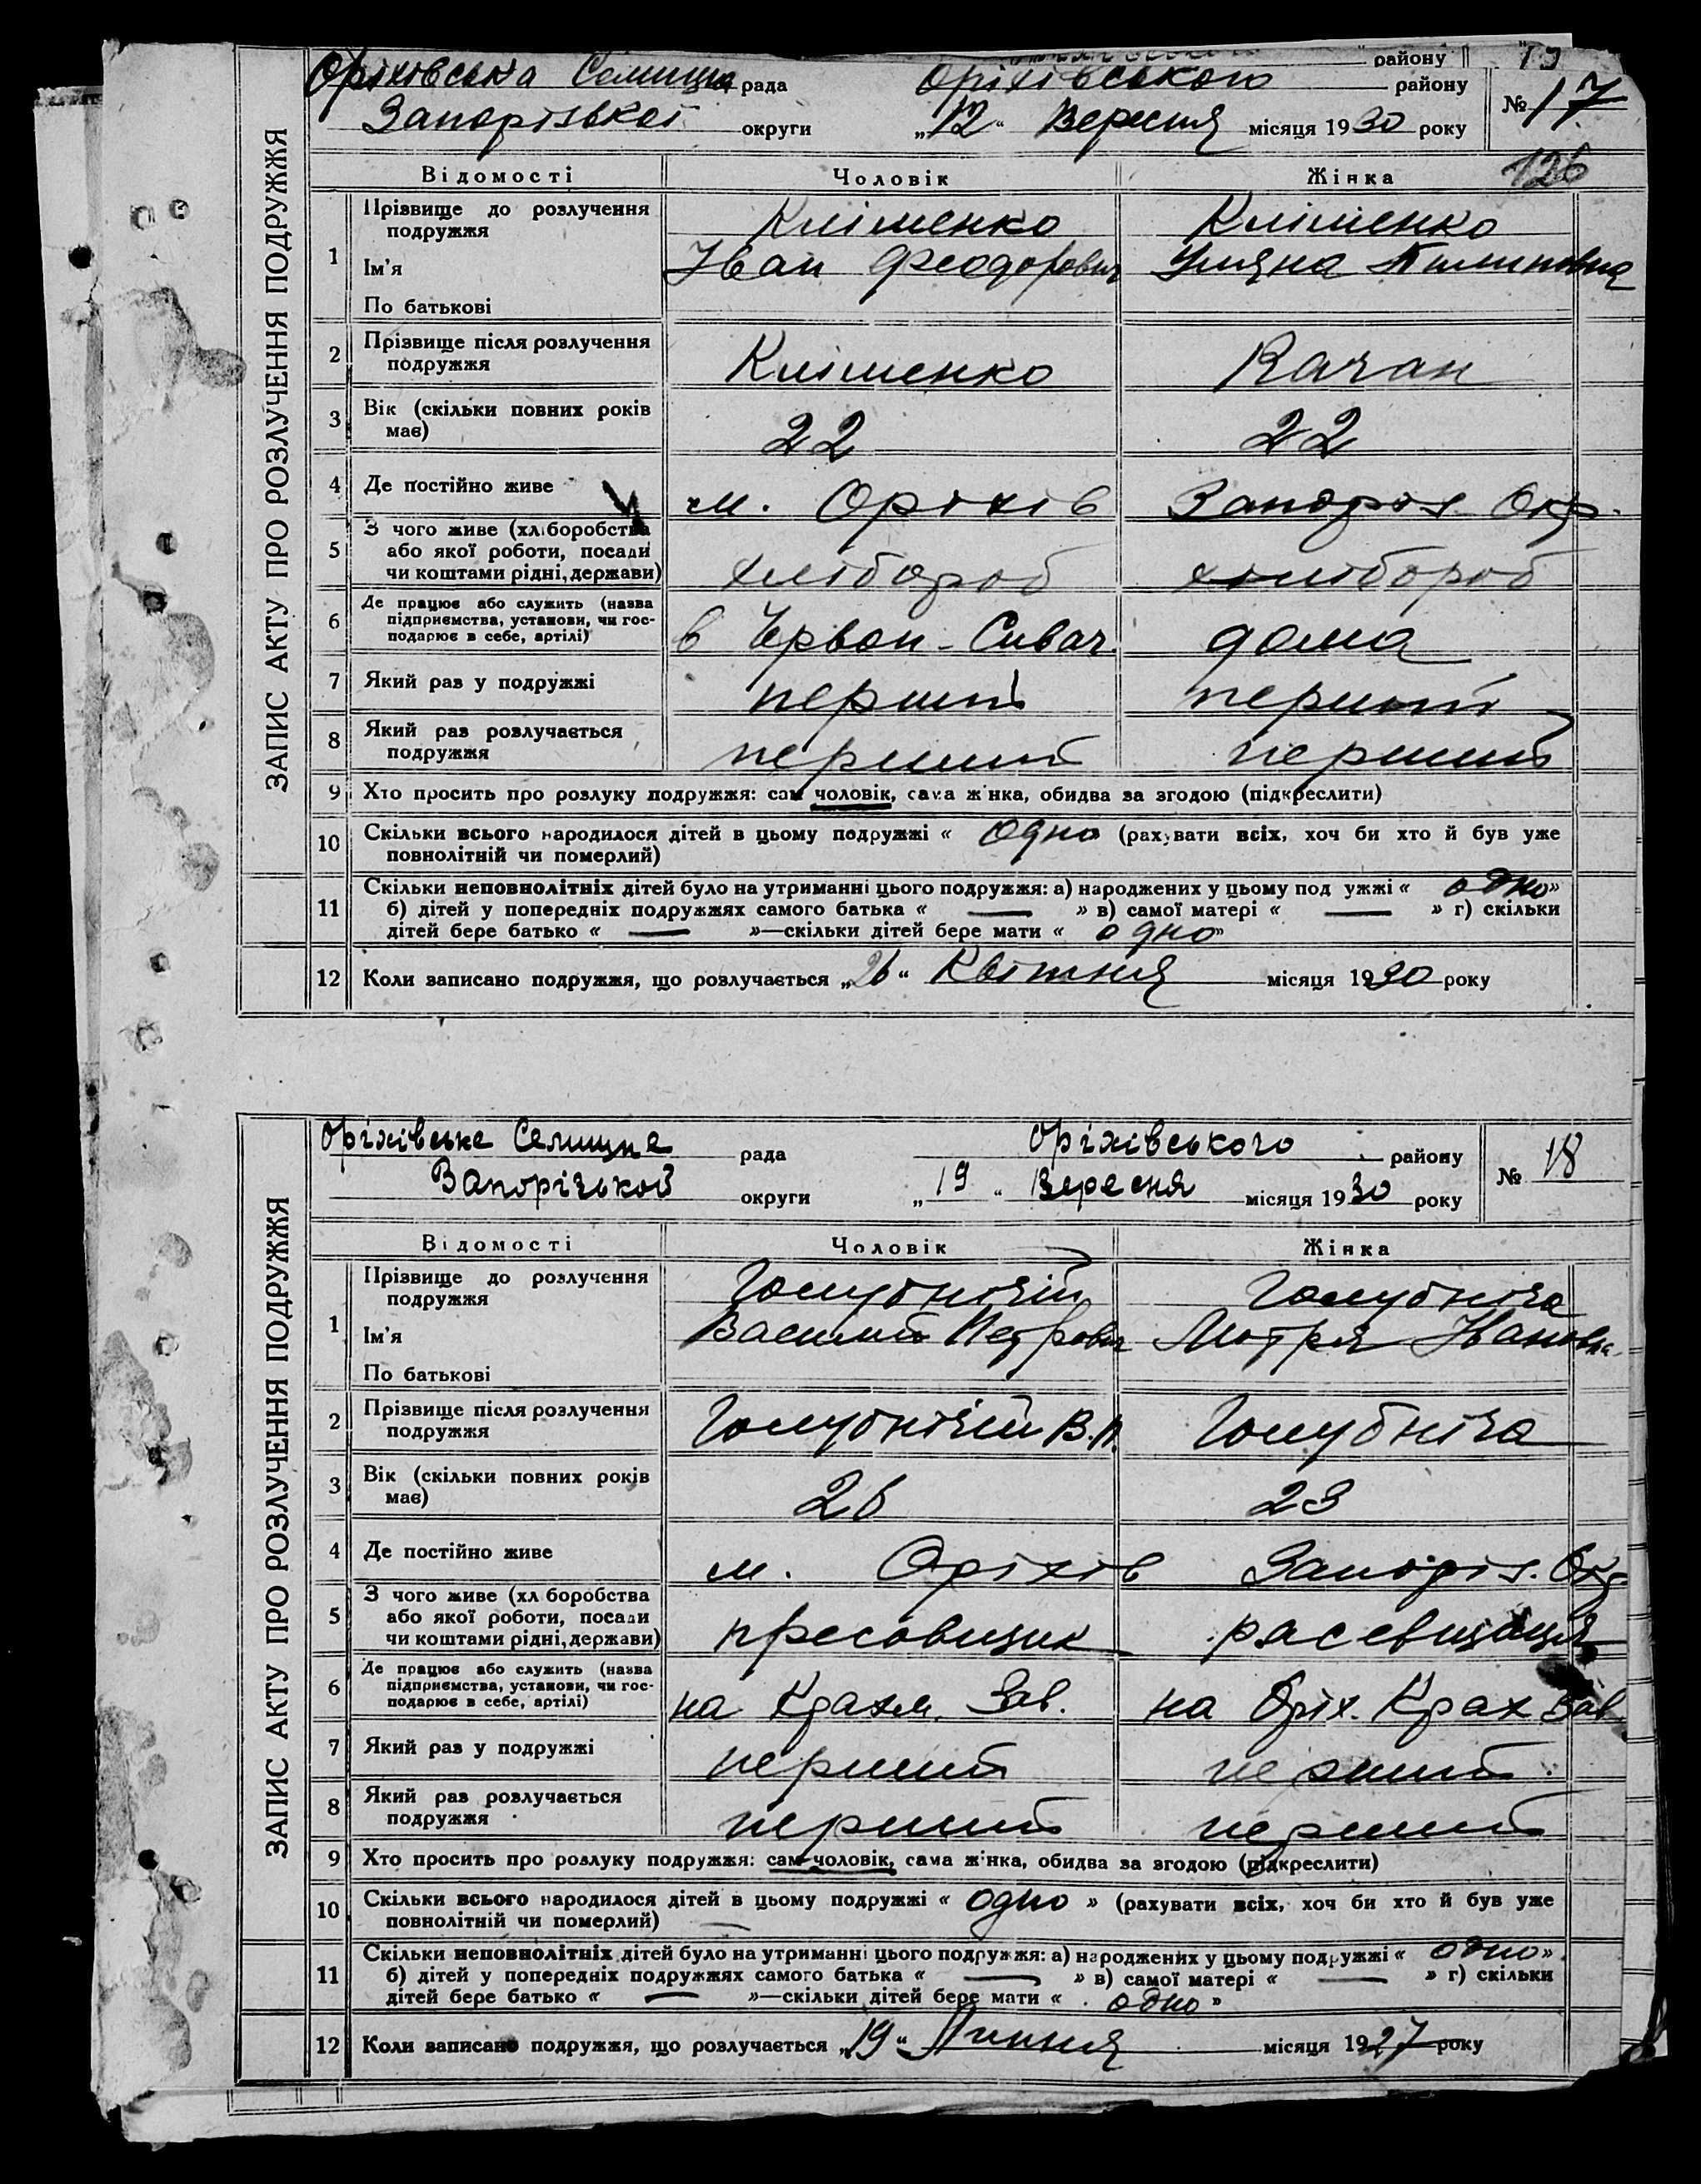 району
Оріхівська Селищна рада Оріхівського району № 17
Запорізької округи „12“ Вересня місяця 1930 року
126
ЗАПИС АКТУ ПРО РОЗЛУЧЕННЯ ПОДРУЖЖЯ
Відомості Чоловік Жінка
1 Прізвище до розлучення подружжя Кліменко Кліменко
Ім'я Іван Феодорович Уляна
По батькові
2 Прізвище після розлучення подружжя Кліменко Качан
3 Вік (скільки повних років має) 22 22
4 Де постійно живе м. Оріхів Запоріз. Окр.
5 З чого живе (хліборобства або якої роботи, посади чи коштами рідні, держави) хлібороб хлібороб
6 Де працює або служить (назва підприємства, установи, чи господарює в себе, артілі) в Червон. Сивач. дома
7 Який раз у подружжі перший перший
8 Який раз розлучається подружжя перший перший
9 Хто просить про розлуку подружжя: сам чоловік, сама жінка, обидва за згодою (підкреслити)
10 Скільки всього народилося дітей в цьому подружжі « одно (рахувати всіх, хоч би хто й був уже
повнолітній чи померлий)
11 Скільки неповнолітніх дітей було на утриманні цього подружжя: а) народжених у цьому подружжі « одно»
б) дітей у попередніх подружжях самого батька « — » в) самої матері « — » г) скільки
дітей бере батько « — »—скільки дітей бере мати « одно»
12 Коли записано подружжя, що розлучається „26“ Квітня місяця 1930 року
Оріхівське Селищне рада Оріхівського району № 18
Запорізькой округи „19“ Вересня місяця 1930 року
ЗАПИС АКТУ ПРО РОЗЛУЧЕННЯ ПОДРУЖЖЯ
Відомості Чоловік Жінка
1 Прізвище до розлучення подружжя Голубнічій Голубніча
Ім'я Василий Петрович Мотря Івановна
По батькові
2 Прізвище після розлучення подружжя Голубнічій В.П. Голубніча
3 Вік (скільки повних років має) 26 23
4 Де постійно живе м. Оріхів Запоріз. Окр.
5 З чого живе (хліборобства або якої роботи, посади чи коштами рідні, держави) пресовщик
6 Де працює або служить (назва підприємства, установи, чи господарює в себе, артілі) на Крахм. Зав. на Оріх. Крах Зав
7 Який раз у подружжі перший перший
8 Який раз розлучається подружжя перший перший
9 Хто просить про розлуку подружжя: сам чоловік, сама жінка, обидва за згодою (підкреслити)
10 Скільки всього народилося дітей в цьому подружжі « одно » (рахувати всіх, хоч би хто й був уже
повнолітній чи померлий)
11 Скільки неповнолітніх дітей було на утриманні цього подружжя: а) народжених у цьому подружжі « одно»
б) дітей у попередніх подружжях самого батька « — » в) самої матері « — » г) скільки
дітей бере батько « — »—скільки дітей бере мати « одно »
12 Коли записано подружжя, що розлучається „19“ Липня місяця 1927 року